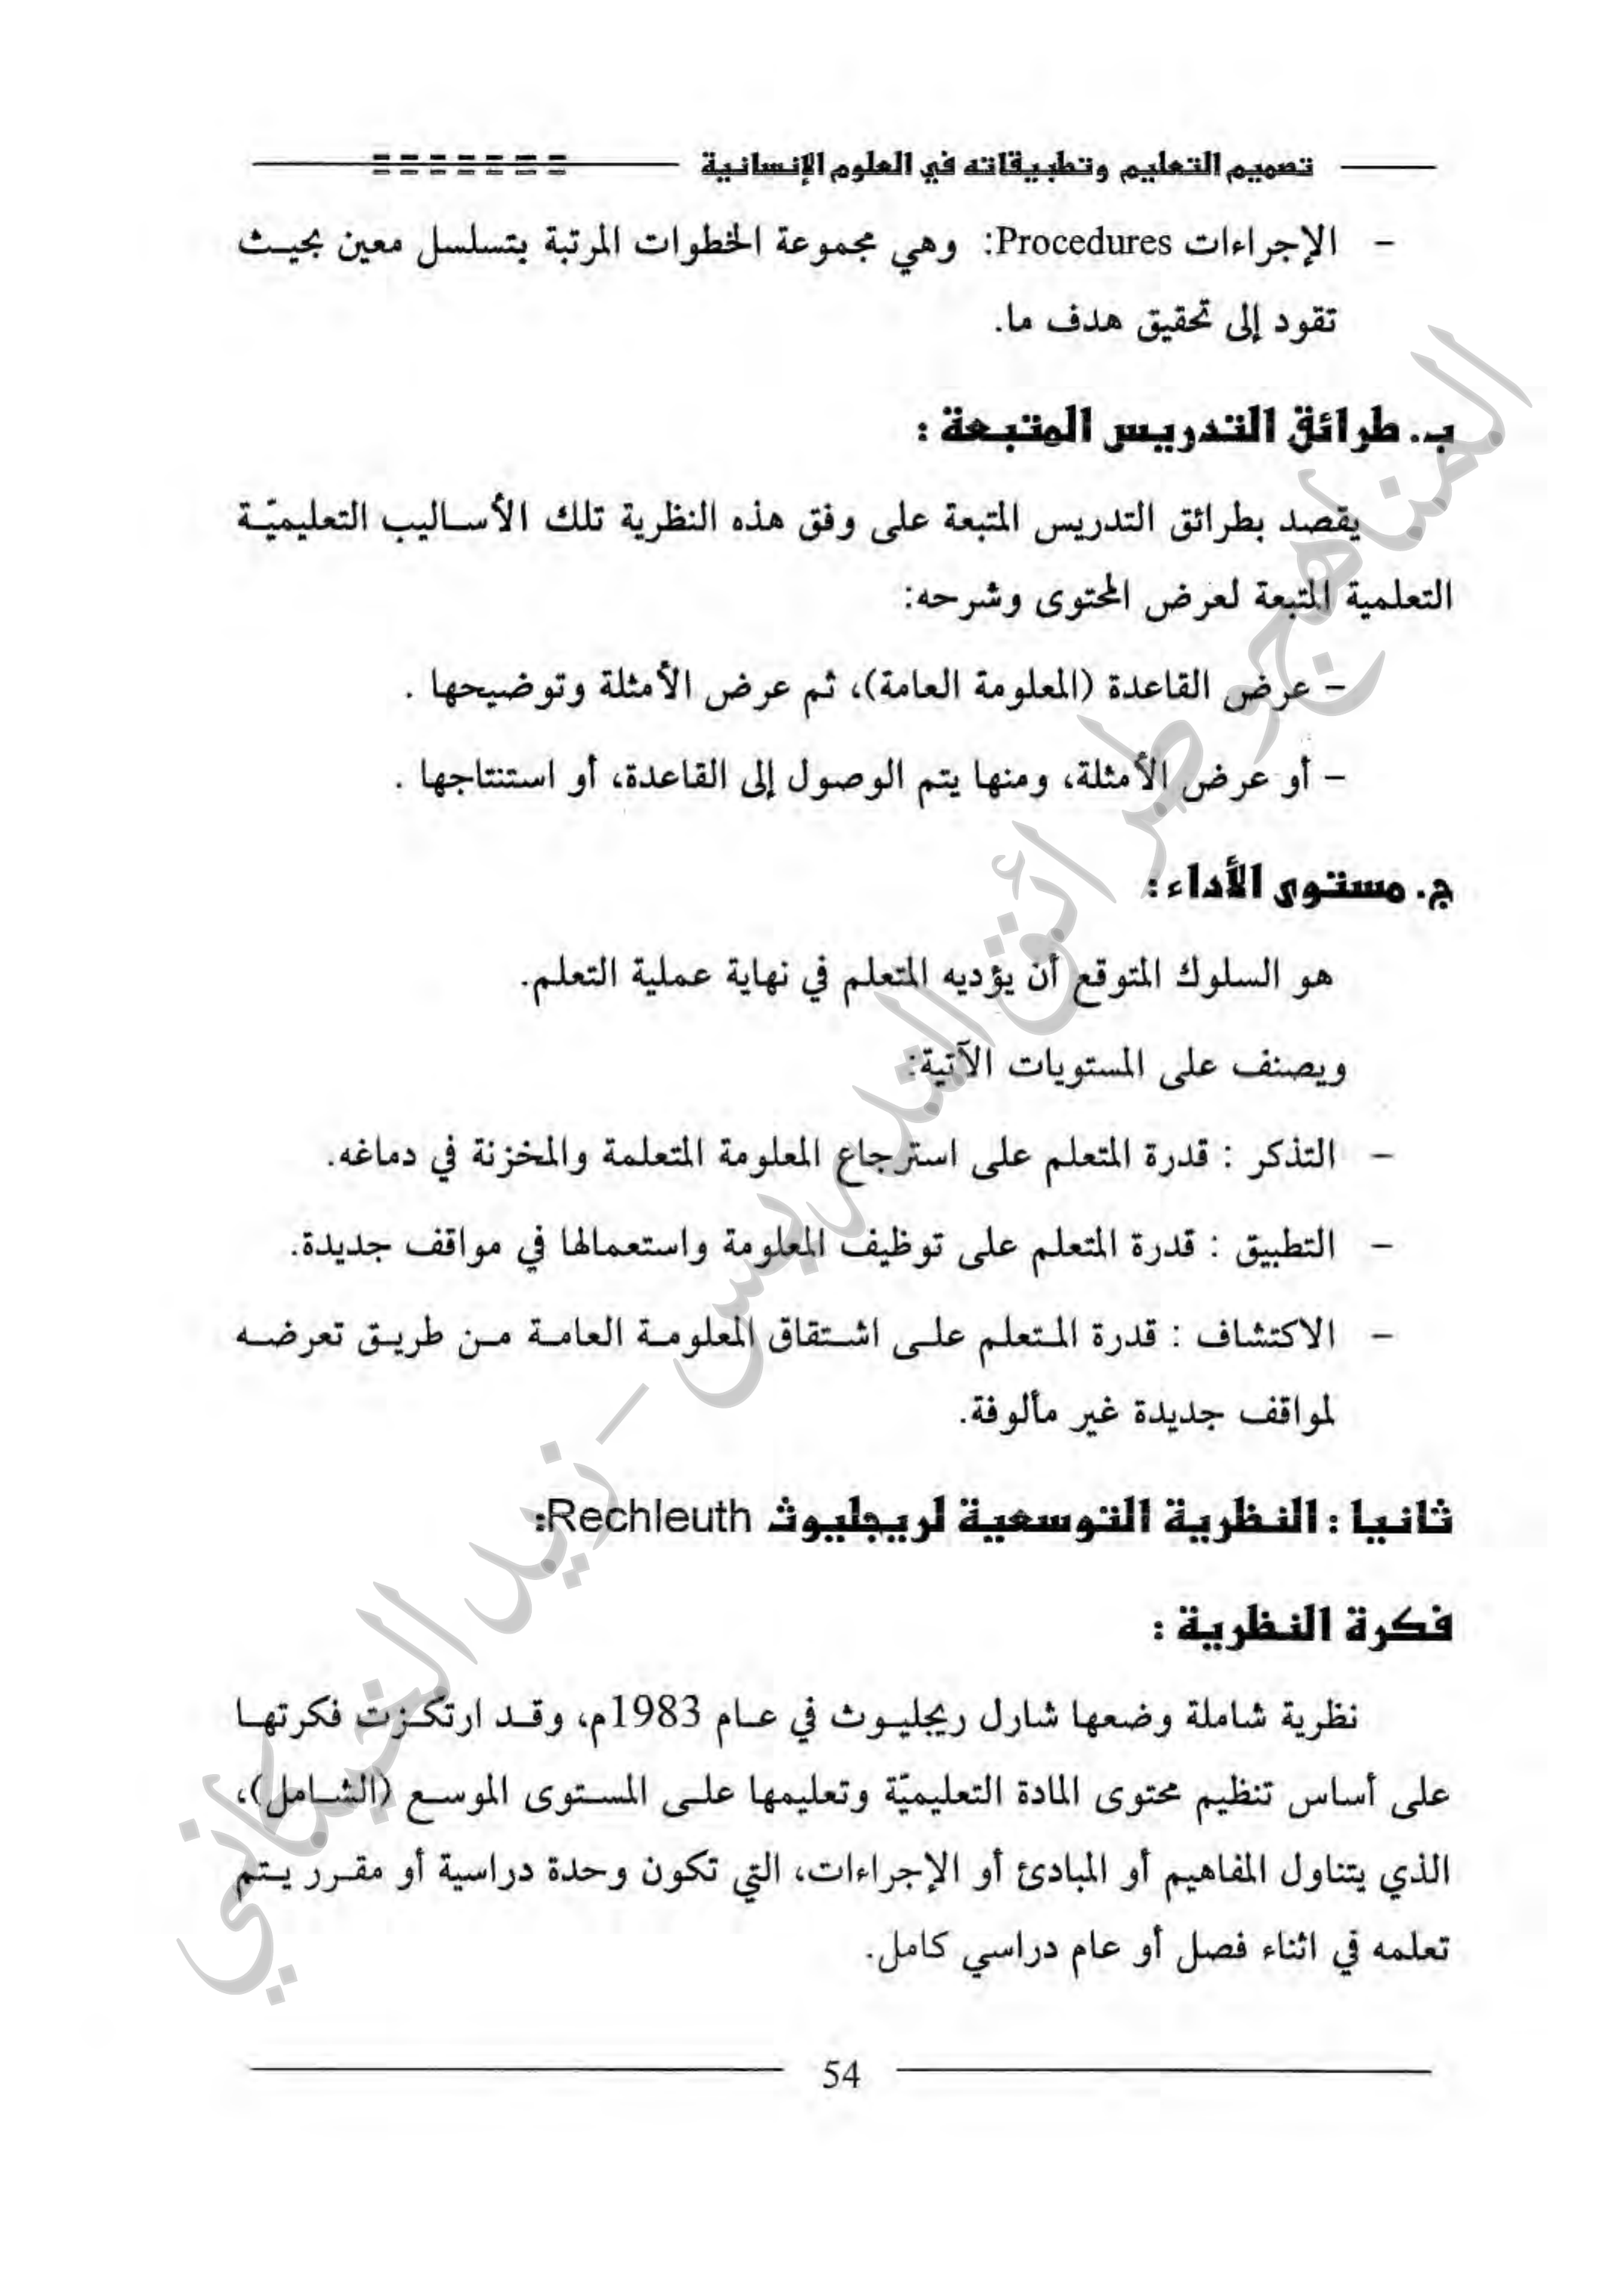 تصميم التعليم وتطبيقاته في العلوم الإنسانية
- الإجراءات Procedures: وهي مجموعة الخطوات المرتبة بتسلسل معين بحيث
تقود إلى تحقيق هدف ما.
ب. طرائق التدريس المتبعة :
يقصد بطرائق التدريس المتبعة على وفق هذه النظرية تلك الأساليب التعليميّة
التعلمية المتبعة لعرض المحتوى وشرحه:
- عرض القاعدة (المعلومة العامة)، ثم عرض الأمثلة وتوضيحها .
- أو عرض الأمثلة، ومنها يتم الوصول إلى القاعدة، أو استنتاجها .
ج. مستوى الأداء :
هو السلوك المتوقع أن يؤديه المتعلم في نهاية عملية التعلم.
ويصنف على المستويات الآتية:
- التذكر : قدرة المتعلم على استرجاع المعلومة المتعلمة والمخزنة في دماغه.
- التطبيق : قدرة المتعلم على توظيف المعلومة واستعمالها في مواقف جديدة.
- الاكتشاف : قدرة المتعلم على اشتقاق المعلومة العامة من طريق تعرضه
لمواقف جديدة غير مألوفة.
ثانيا : النظرية التوسعية لريجليوث Rechleuth:
فكرة النظرية :
نظرية شاملة وضعها شارل ريجليوث في عام 1983م، وقد ارتكزت فكرتها
على أساس تنظيم محتوى المادة التعليميّة وتعليمها على المستوى الموسع (الشامل)،
الذي يتناول المفاهيم أو المبادئ أو الإجراءات، التي تكون وحدة دراسية أو مقرر يتم
تعلمه في اثناء فصل أو عام دراسي كامل.
54
المناهج وطرائق التدريس - زيد الخيكاني